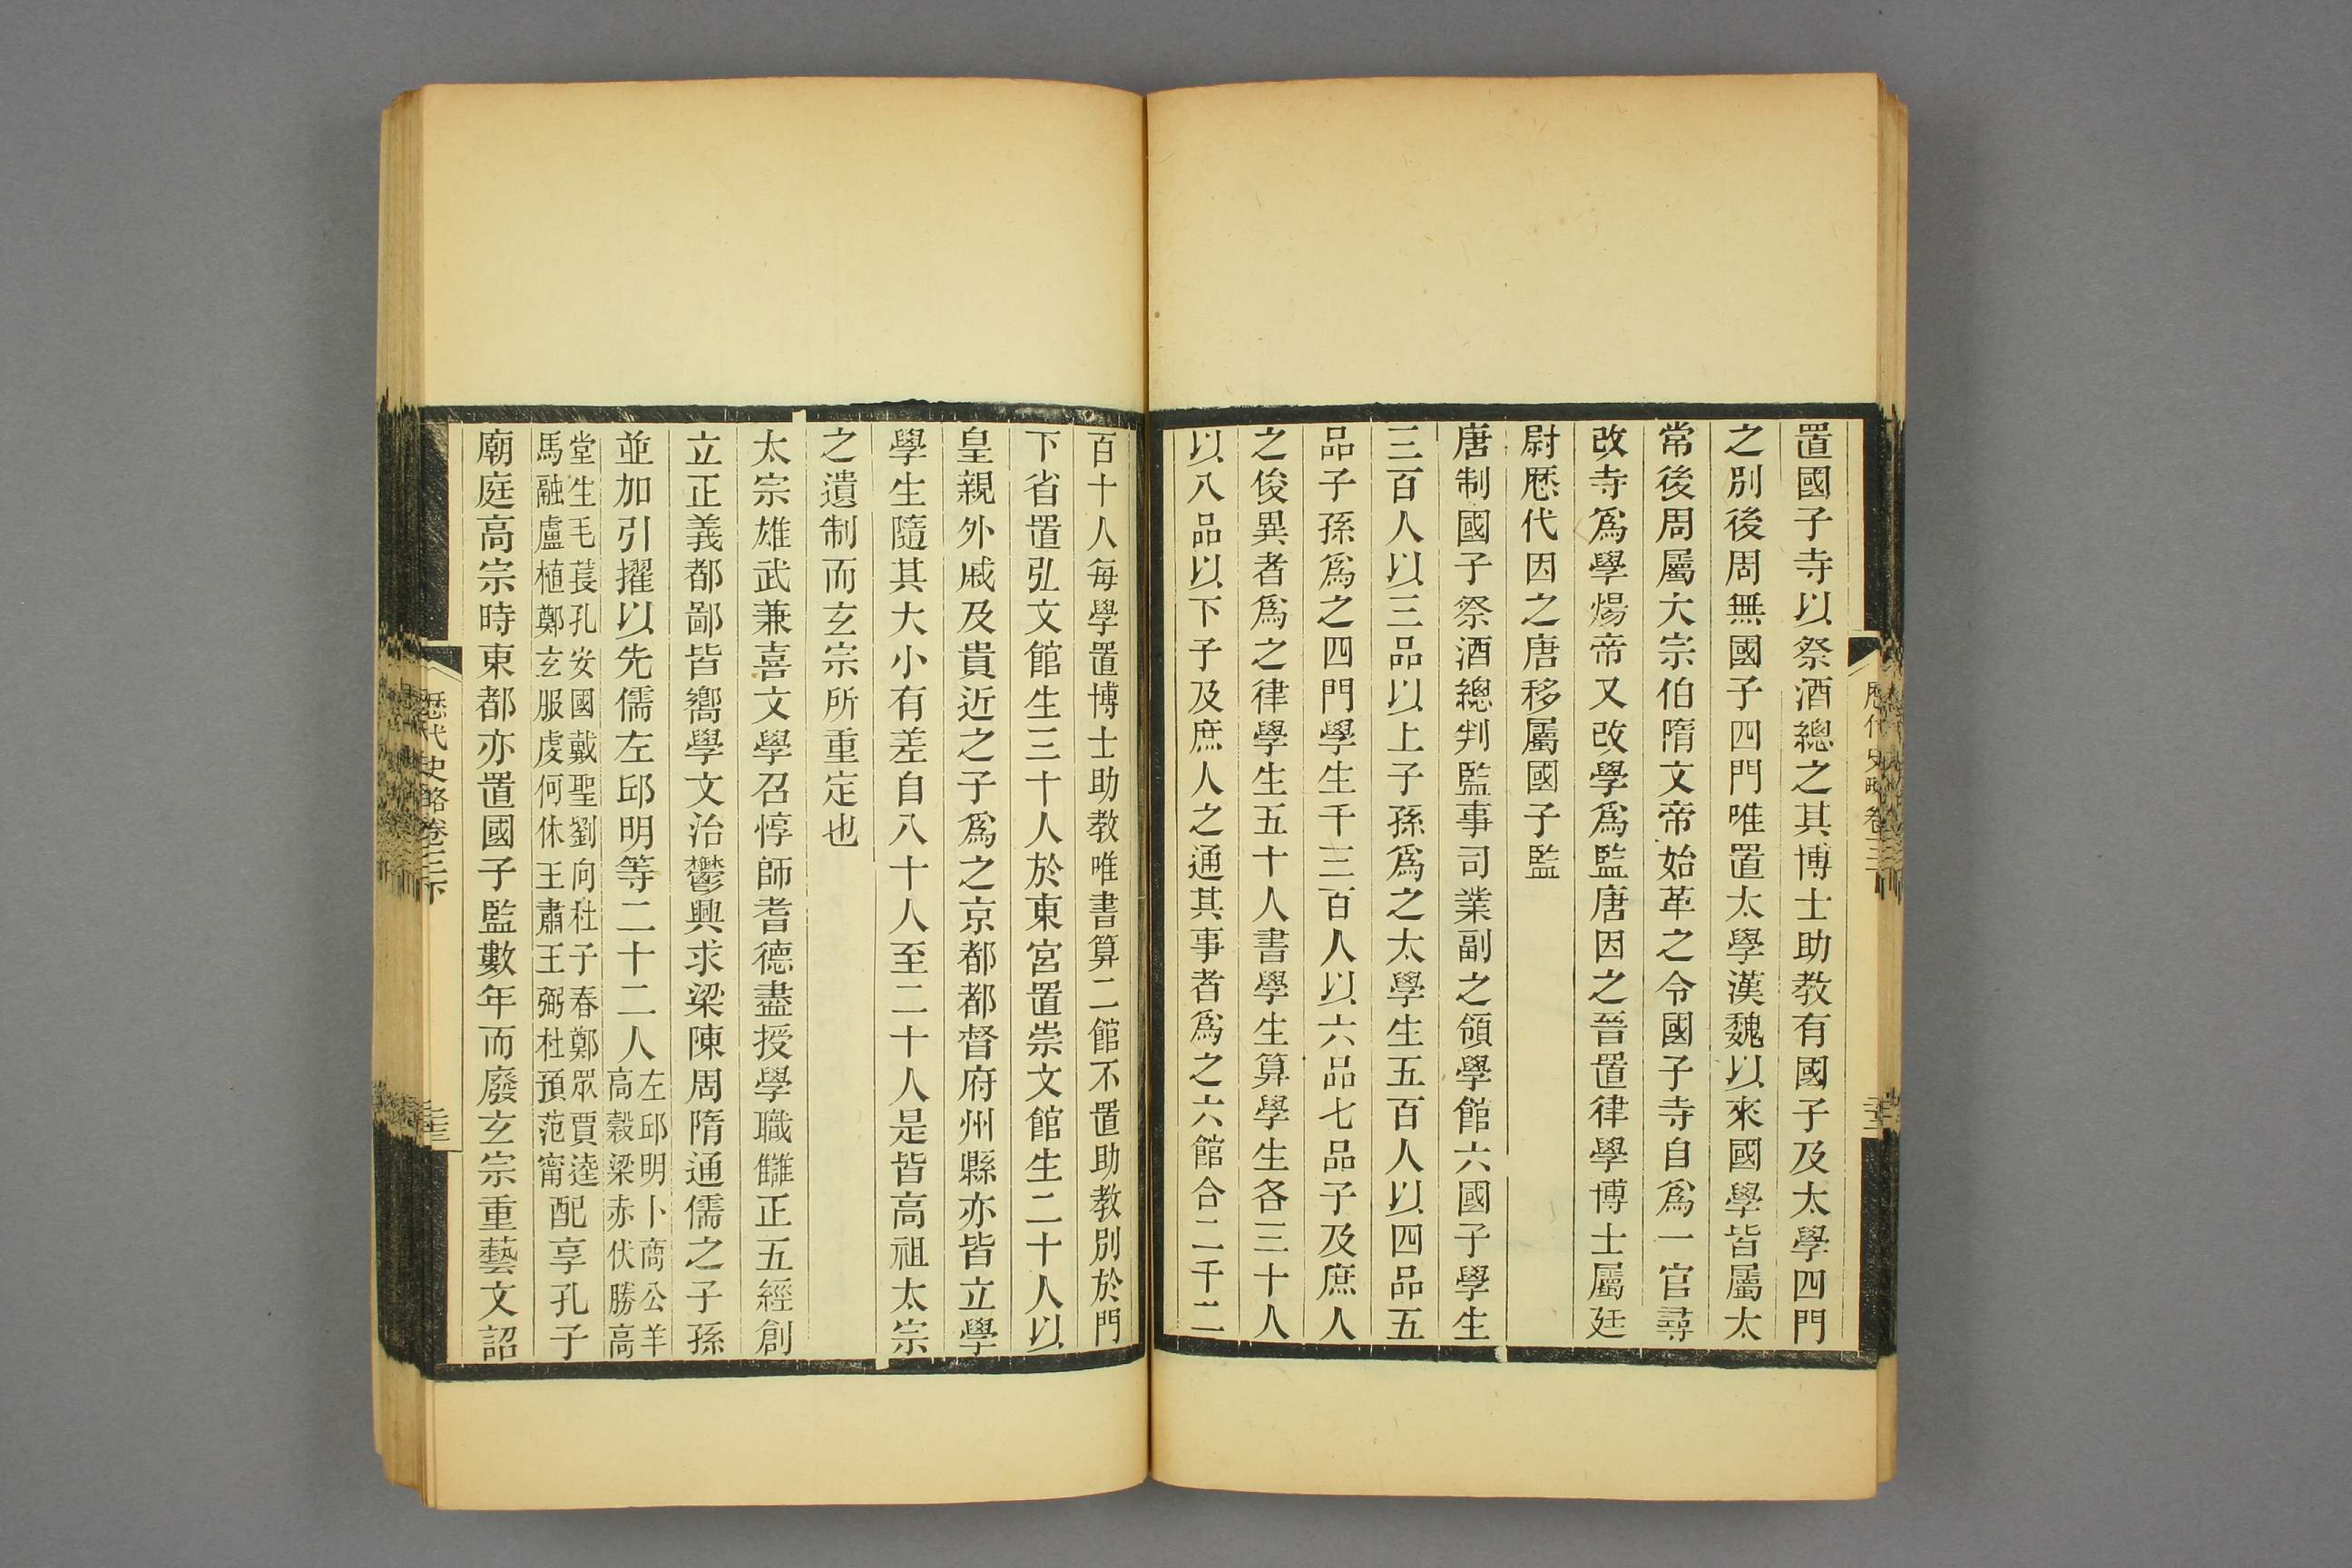 置國子寺以祭酒總之其博士助教有國子及太學四門
之別後周無國子四門唯置太學漢魏以來國學皆屬太
常後周屬大宗伯隋文帝始革之令國子寺自爲一官尋
改寺爲學煬帝又改學爲監唐因之晉置律學博士屬廷
尉歷代因之唐移屬國子監
唐制國子祭酒總判監事司業副之領學館六國子學生
三百人以三品以上子孫爲之太學生五百人以四品五
品子孫爲之四門學生千三百人以六品七品子及庶人
之俊異者爲之律學生五十人書學生算學生各三十人
以八品以下子及庶人之通其事者爲之六館合二千二
百十人每學置博士助教唯書算二館不置助教別於門
下省置弘文館生三十人於東宮置崇文館生二十人以
皇親外戚及貴近之子爲之京都都督府州縣亦皆立學
學生隨其大小有差自八十人至二十人是皆高祖太宗
之遺制而玄宗所重定也
太宗雄武兼喜文學召惇師耆德盡授學職讎正五經創
立正義都鄙皆嚮學文治鬱興求梁陳周隋通儒之子孫
並加引擢以先儒左邱明等二十二人
左邱明卜商公羊
高穀梁赤伏勝高
堂生毛萇孔安國戴聖劉向杜子春鄭眾賈逵
馬融盧植鄭玄服虔何休王肅王弼杜預范甯
配享孔子
廟庭高宗時東都亦置國子監數年而廢玄宗重藝文詔
歷代史略卷三下